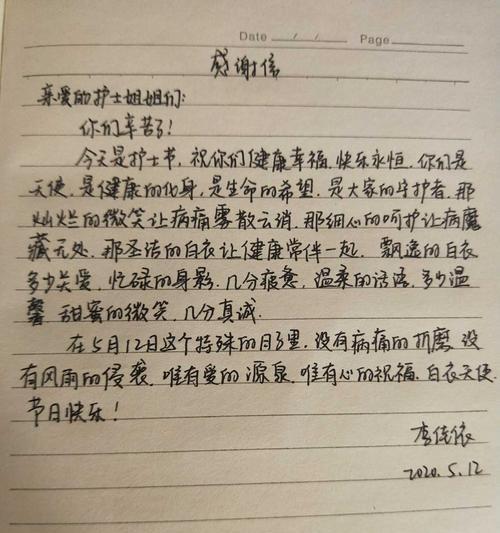 Date / / Page
感谢信
亲爱的护士姐姐们:
你们辛苦了!
今天是护士节,祝你们健康幸福,快乐永恒,你们是
天使,是健康的化身,是生命的希望,是大家的守护者,那
灿烂的微笑让病痛雾散云消,那细心的呵护让病魔
藏无处,那圣洁的白衣让健康常伴一起,飘逸的白衣
多少关爱,忙碌的身影,几分疲惫,温柔的话语,多少温
馨,甜蜜的微笑,几分真诚.
在5月12日这个特殊的日子里,没有病痛的折磨,没
有风雨的侵袭,唯有爱的源泉,唯有心的祝福,白衣天使
节日快乐!
李佳依
2020.5.12